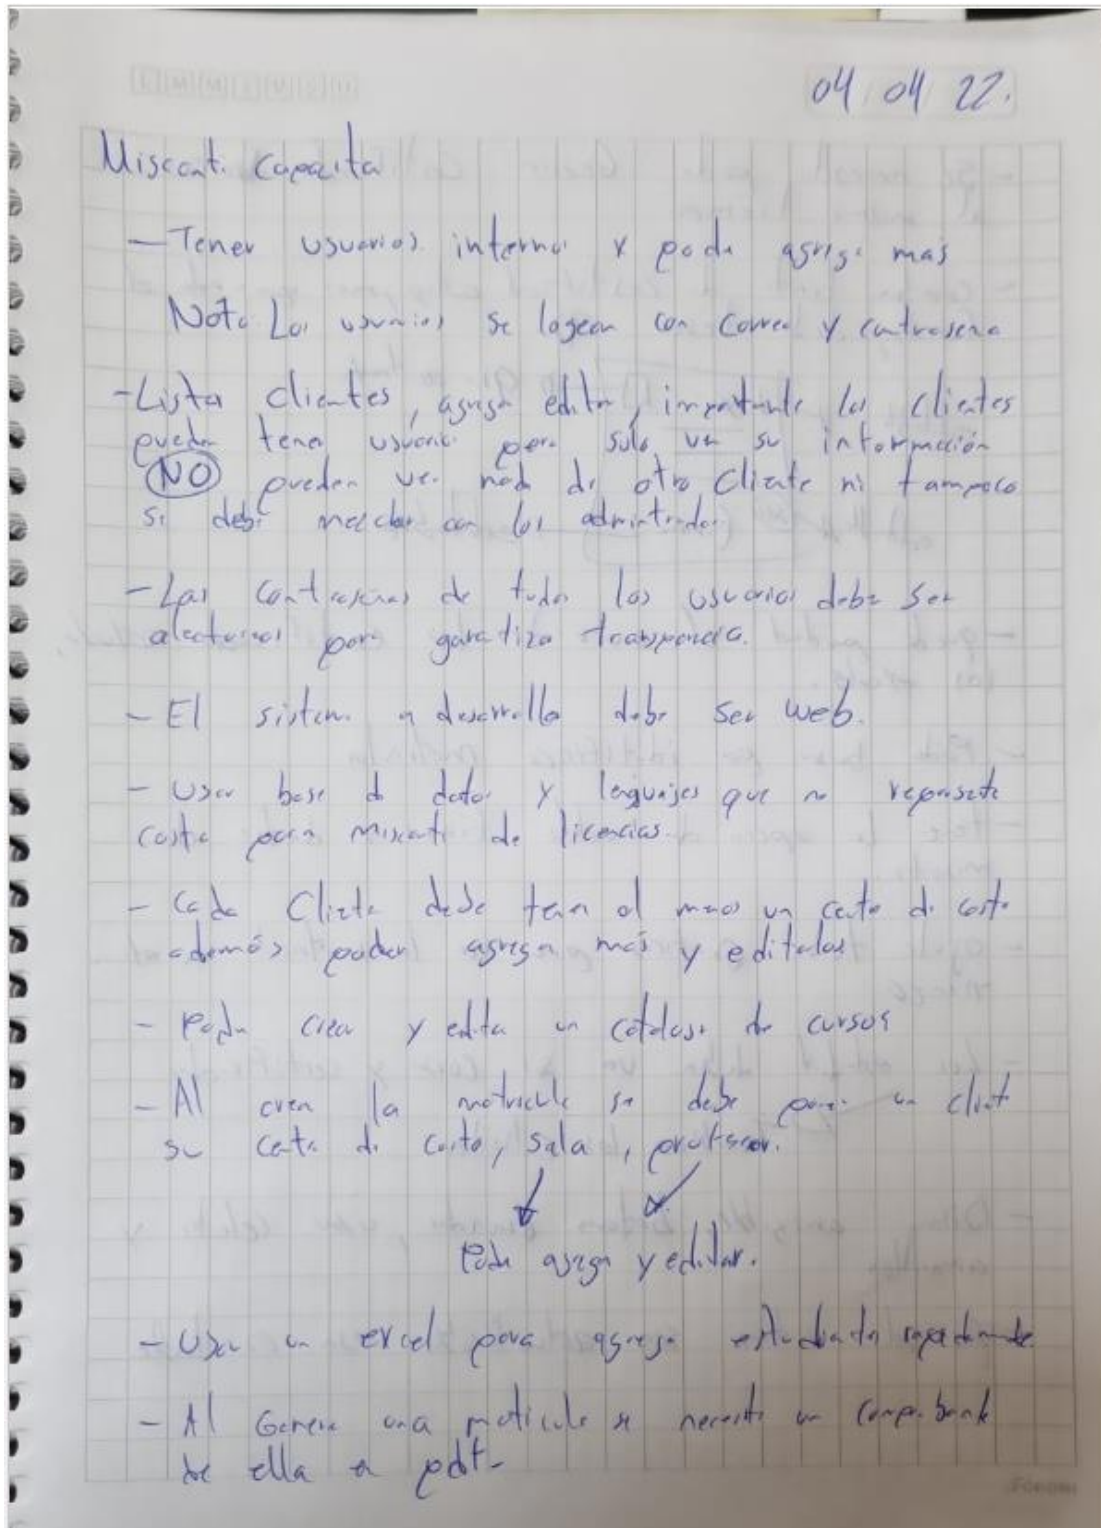 04 04 22.
Miscanti Capacita
- Tener usuarios interno y poder agregar mas
Nota Los usuarios se logean con Correo y contraseña
- Listar clientes, agregar editar, importante los clientes
pueden tener usuario pero solo ver su información
NO pueden ver nada de otro Cliente ni tampoco
se debe mezclar con los
- Las contraseñas de todos los usuarios debe ser
aleatorias para garantizar
- El sistema a desarrollar debe ser web.
- Usar base de datos y lenguajes que no represente
costo para miscanti de licencias.
- Cada Cliente debe tener al menos un centro de costo
además poder agregar más y editarlos
- Poder crear y editar un catalogo de cursos
- Al crear la matricula se debe poner un cliente
su centro de costo, sala, profesor.
Poder agregar y editar.
- Usar un excel para agregar estudiantes rapidamente
- Al Generar una matricula se necesita un comprobante
de ella en pdf.